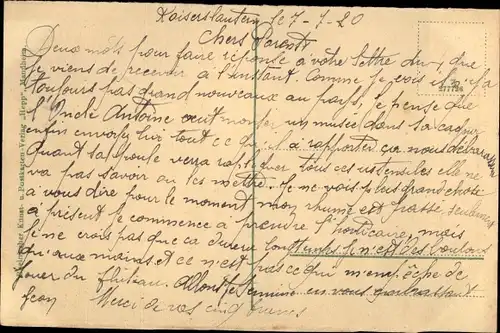 Kaiserslautern le 7-7-20
Chers Parents
Deux mots pour faire réponse à votre lettre du 4 que
je viens de recevoir à l'instant. Comme je vois il n'y a
toujours pas grand nouveaux au pays, je pense que
l'Oncle Antoine veut monter un musée dans sa
enfin envoyez lui tout ce qu'il a rapporter ça nous débarassera
Quand sa poule verra rabliquer tous ces ustensibles elle ne
va pas savoir ou les mettre. Je ne vois plus grand chose
à vous dire pour le moment, mon rhume est passé, seulement
à présent je commence à prendre l'horticaire, mais
je ne crois pas que ça durera longtemps, je n'ai des boutons
qu'aux mains et ce n'est pas ce qui m'empêche de
jouer du fluteau. Allons je termine en vous
Merci de vos cinq francs
Kunst- u. Postkarten-Verlag
277728